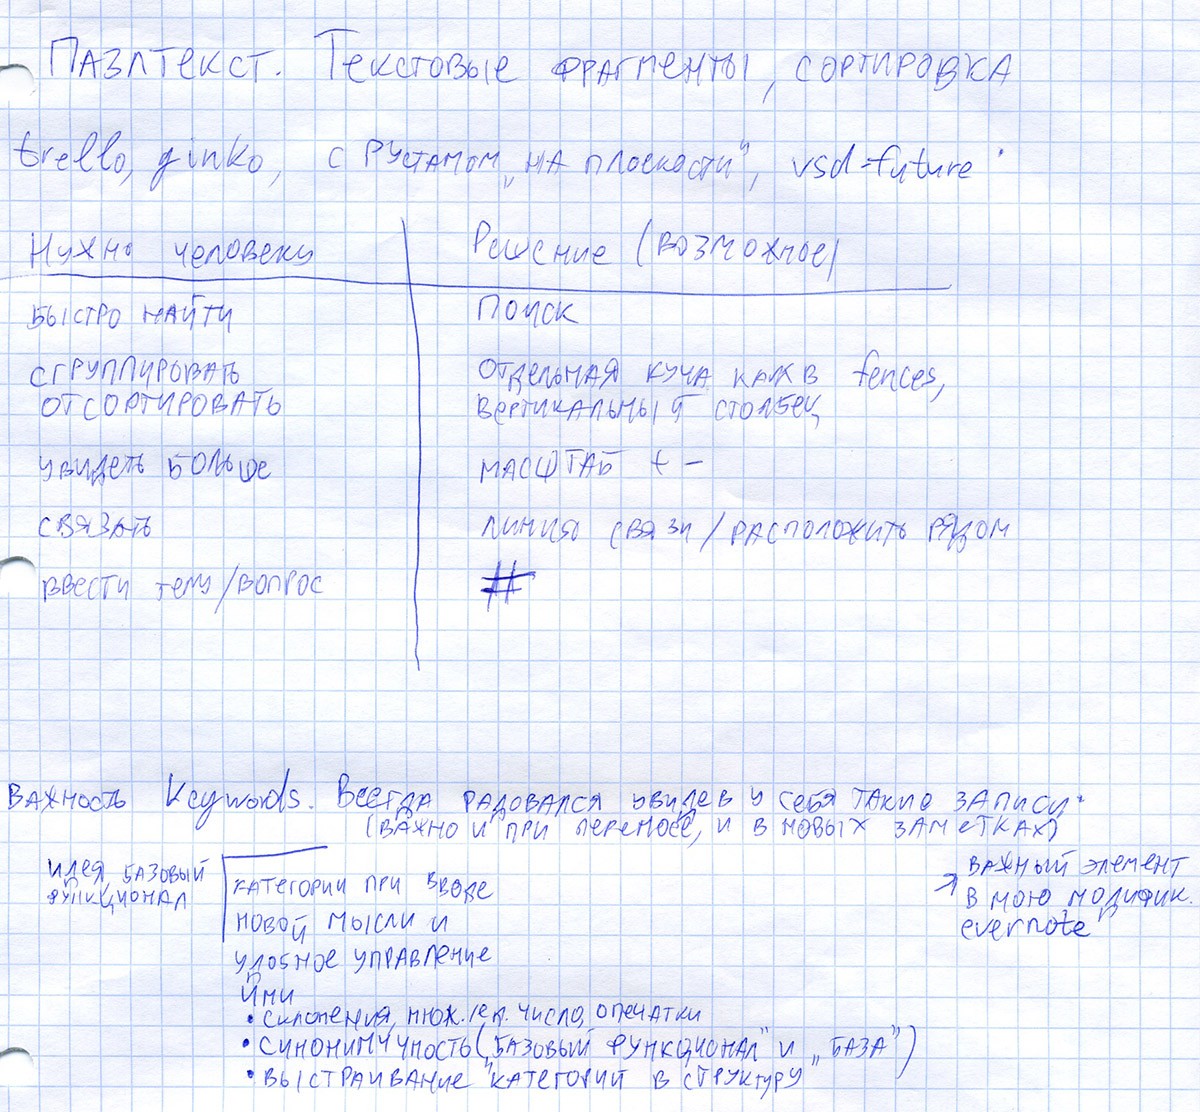 Пазлтекст. Текстовые фрагменты, сортировка
trello, ginko, с Рустамом „на плоскости", vsd-future
Нужно человеку
Решение (возможное)
быстро найти
поиск
сгруппировать
отсортировать
отдельная куча как в fences,
вертикальный столбец
увидеть больше
масштаб + -
связать
линия связи / расположить рядом
ввести тему/вопрос
#
Важность Keywords. Всегда радовался увидев у себя такие записи.
(важно и при переносе, и в новых заметках)
идея, базовый
функционал
категории при вводе
новой мысли и
удобное управление
ими
• склонения, множ./ед. число, опечатки
• синонимичность („базовый функционал" и „база")
• выстраивание "категорий в структуру"
→ важный элемент
в мою модифик.
evernote